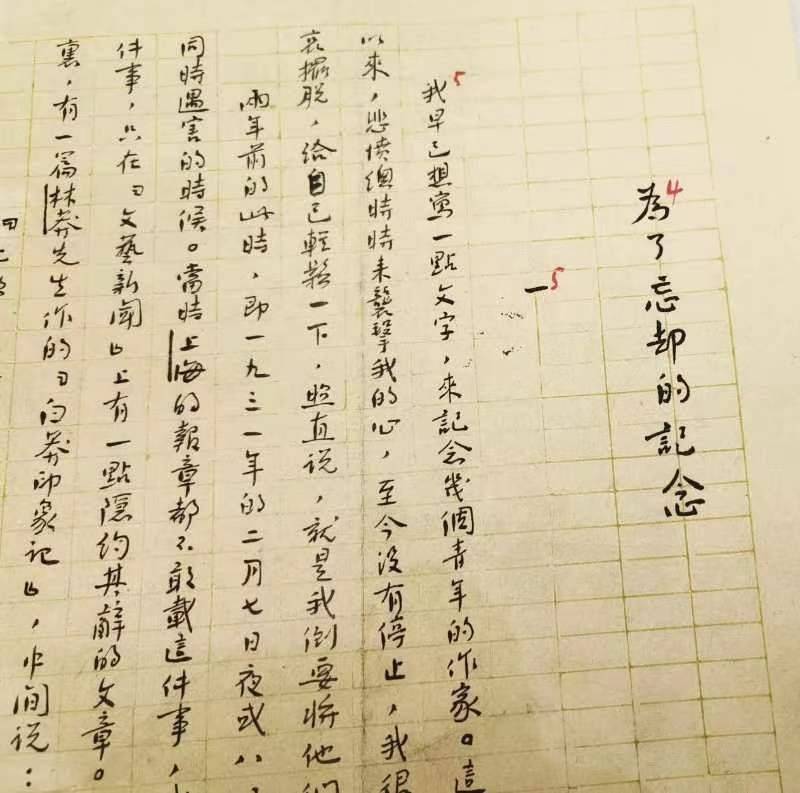 4
為了忘却的記念
一5
5
我早已想寫一點文字，來記念幾個青年的作家。這
以來，悲憤總時時来襲擊我的心，至今没有停止，我很
哀擺脱，給自己輕鬆一下，照直说，就是我倒要将他们
兩年前的此時，即一九三一年的二月七日夜或八
同時遇害的時候。當時上海的報章都不敢載這件事，
件事，只在『文藝新聞』上有一點隱約其辭的文章。
裏，有一篇林莽先生作的『白莽印象記』，中间说：